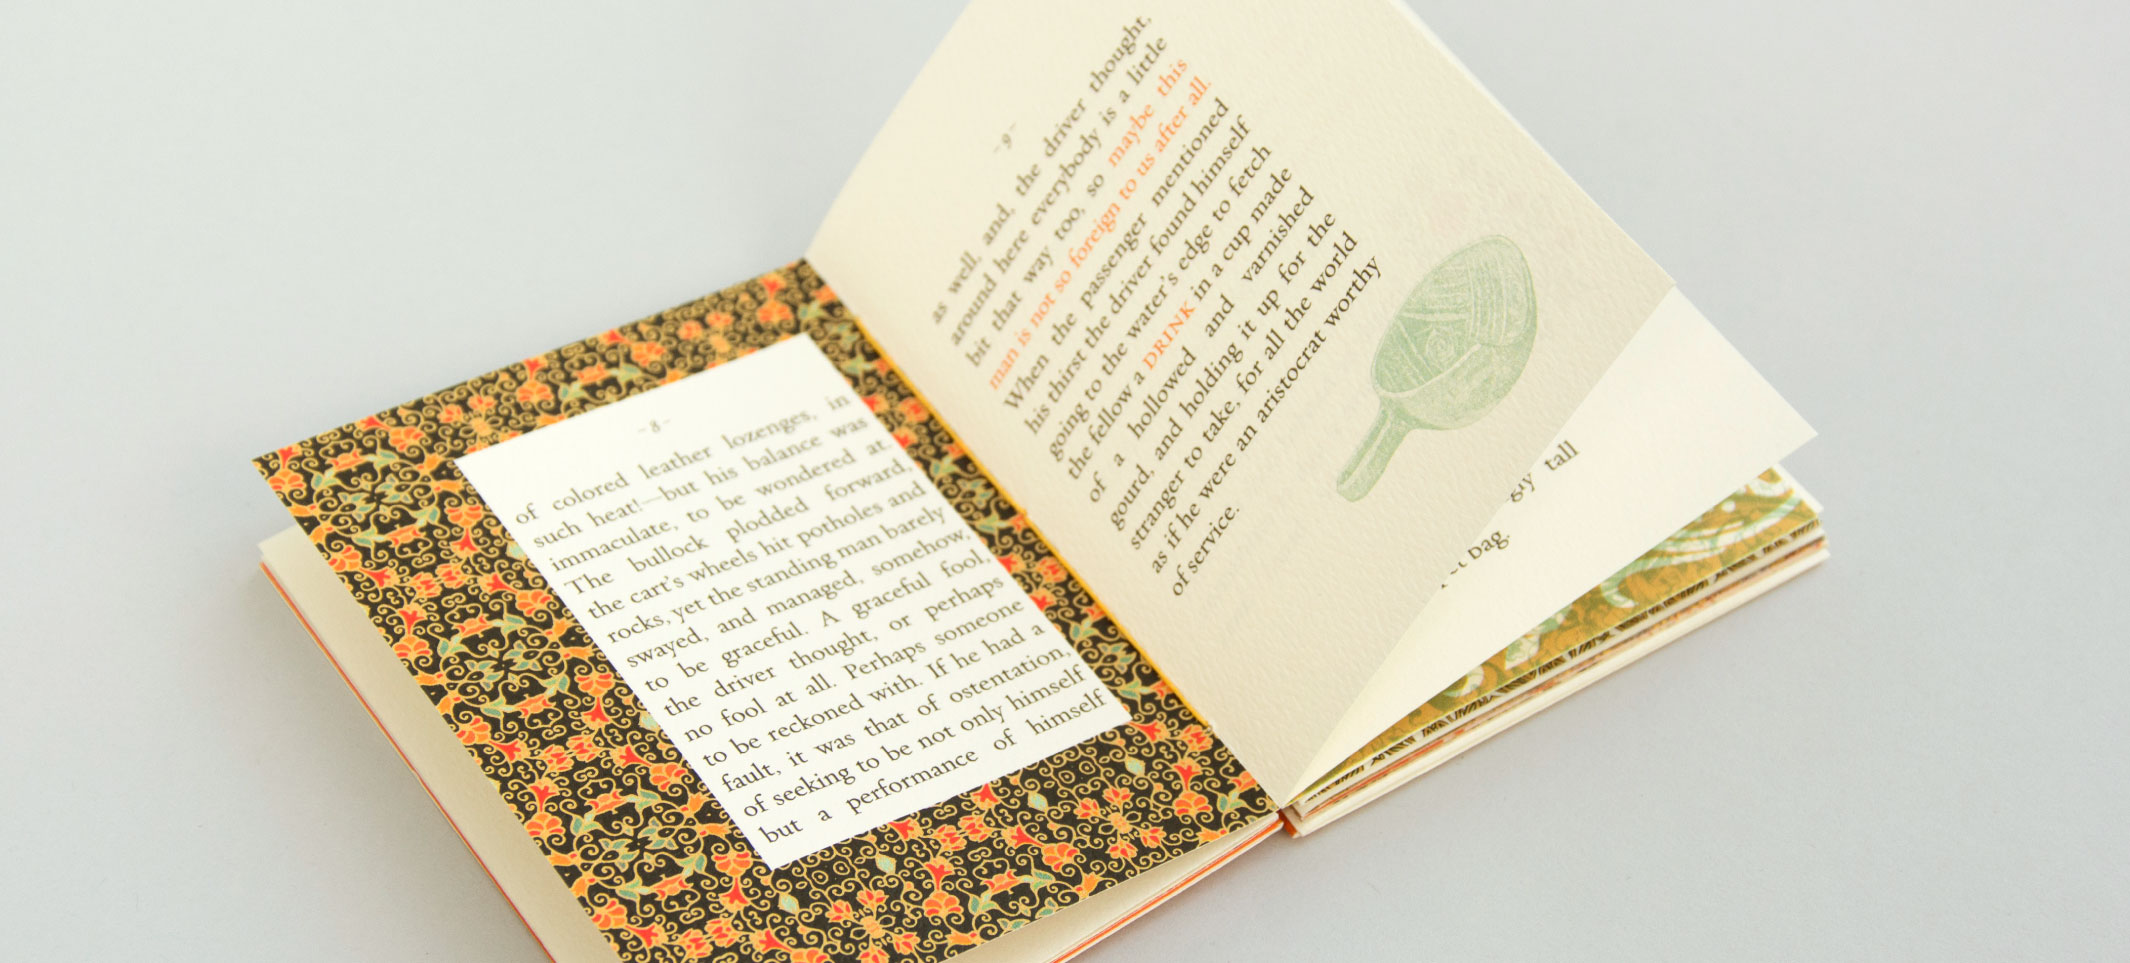 -8-
of colored leather lozenges, in
such heat!—but his balance was
immaculate, to be wondered at.
The bullock plodded forward,
the cart's wheels hit potholes and
rocks, yet the standing man barely
swayed, and managed, somehow,
to be graceful. A graceful fool,
the driver thought, or perhaps
no fool at all. Perhaps someone
to be reckoned with. If he had a
fault, it was that of ostentation,
of seeking to be not only himself
but a performance of himself
-9-
as well, and, the driver thought,
around here everybody is a little
bit that way too, so maybe this
man is not so foreign to us after all.
When the passenger mentioned
his thirst the driver found himself
going to the water's edge to fetch
the fellow a DRINK in a cup made
of a hollowed and varnished
gourd, and holding it up for the
stranger to take, for all the world
as if he were an aristocrat worthy
of service.
tall
bag.